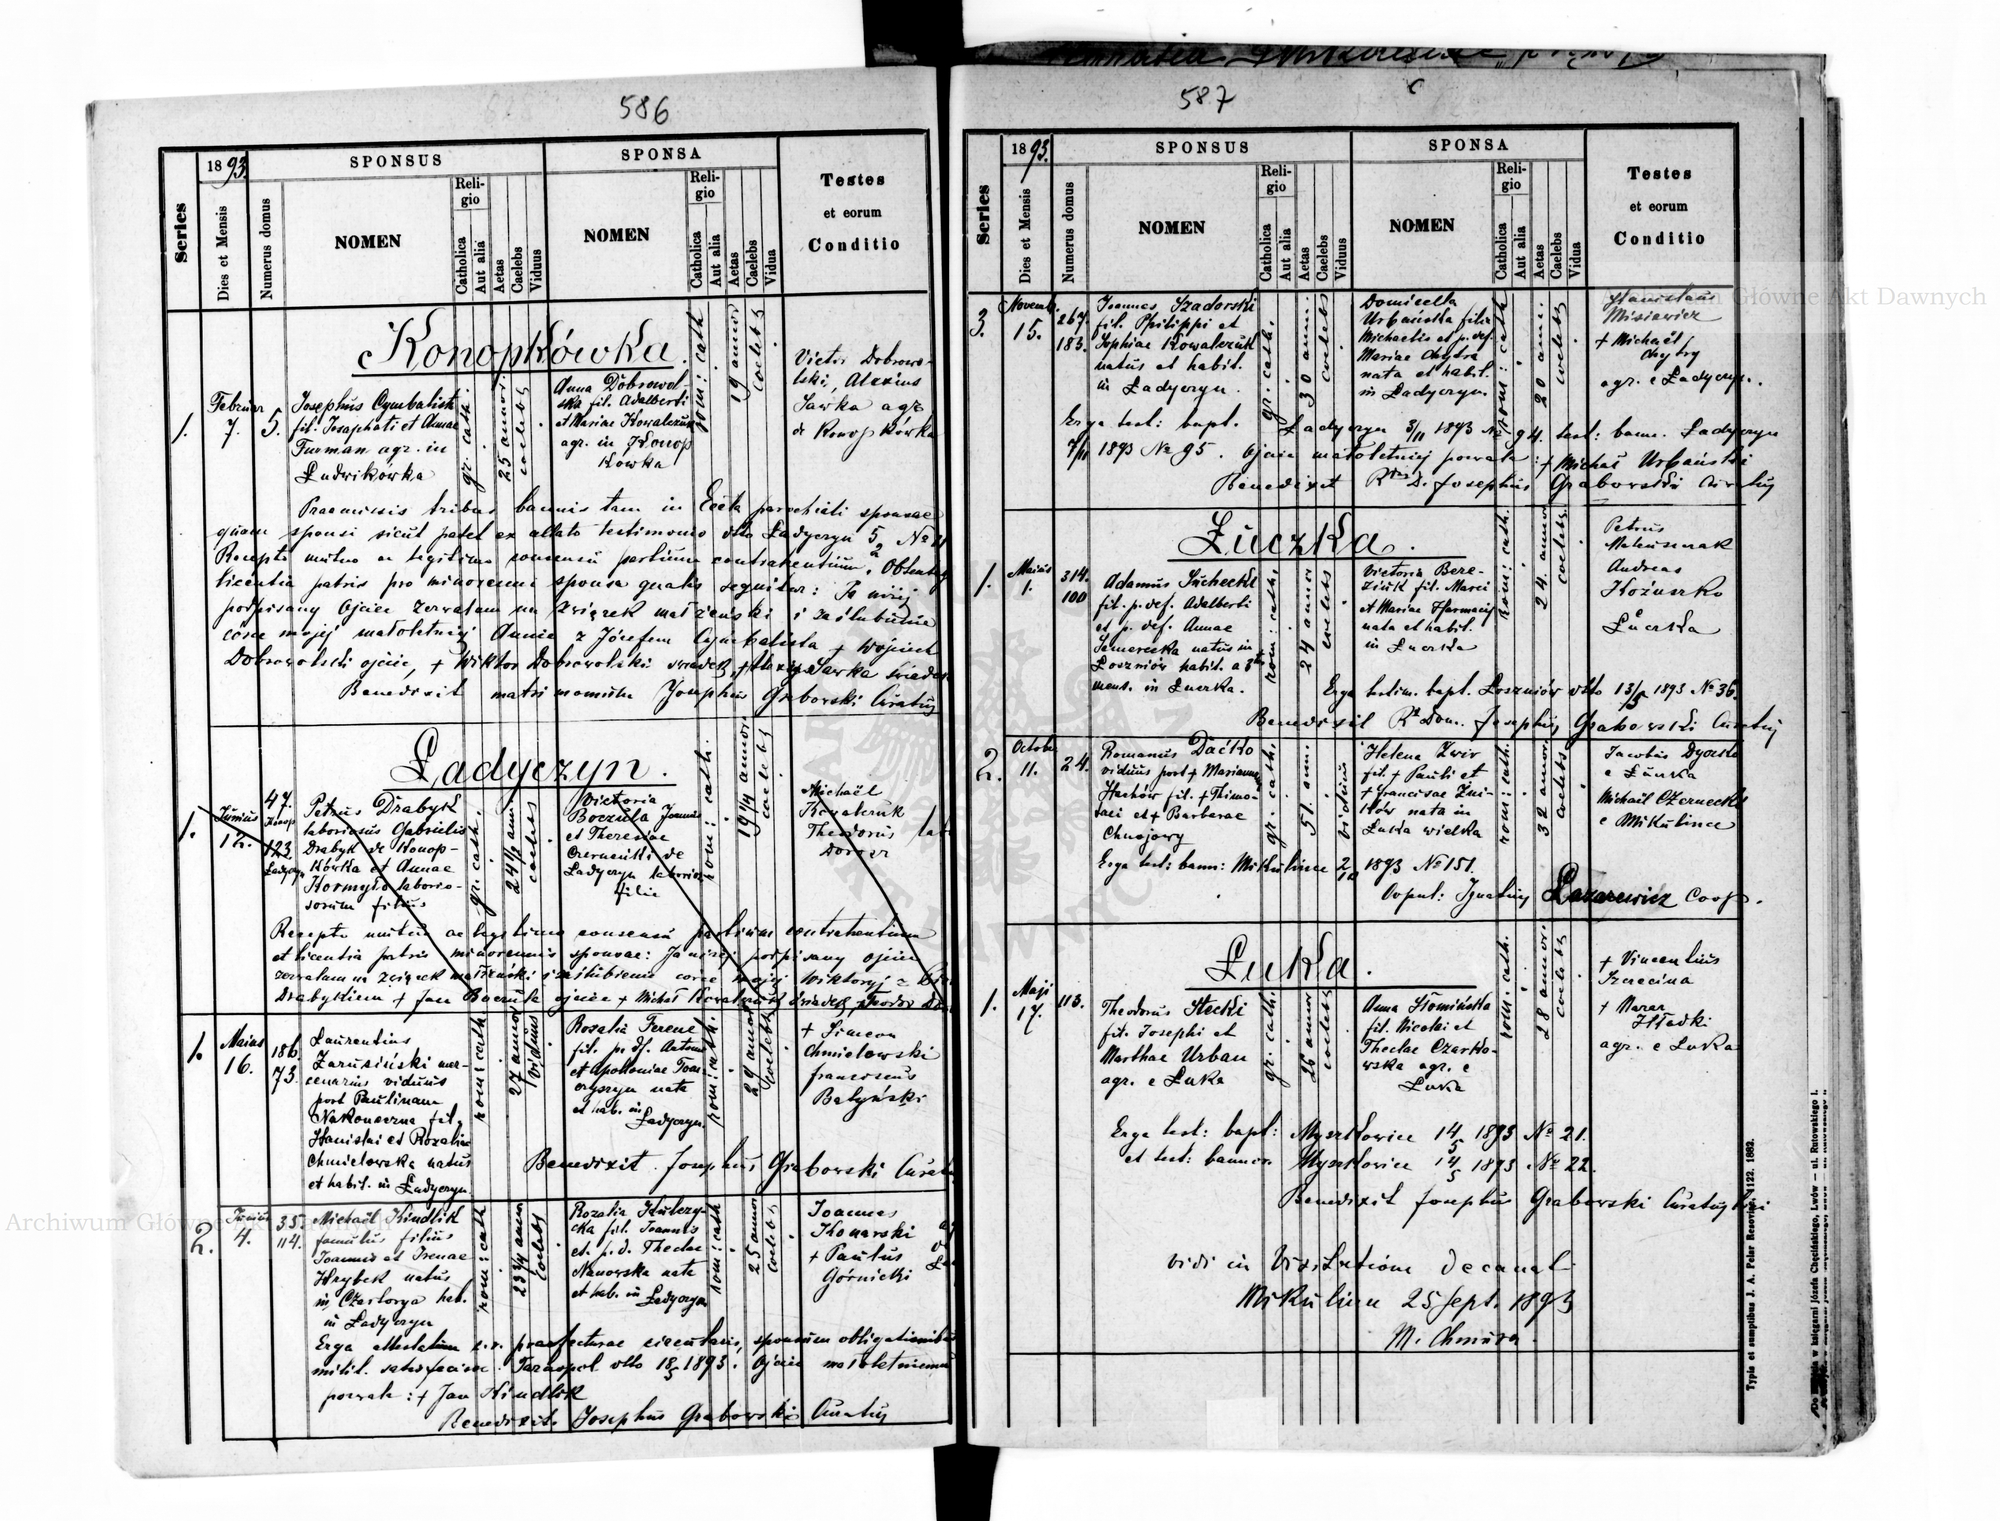 586
Series
1893.
Dies et Mensis
Numerus domus
SPONSUS
NOMEN
Religio
Catholica
Aut alia
Aetas
Caelebs
Viduus
SPONSA
NOMEN
Religio
Catholica
Aut alia
Aetas
Caelebs
Vidua
Testes
et eorum
Conditio
Konopkówka.
1.
Februar
7.
5.
Josephus Cymbalista
fil. Josaphati et Annae
Furman agr. in
Ludwikówka
gr. cath.
25 annor.
coelebs
Anna Dobrowol-
ska fil. Adalberti
et Mariae Kowalczuk
agr. in Konop
kówka
rom: cath
19 annor
coelebs
Victor Dobrowo-
lski, Alexius
Sawka agr
de Konopkówka
Praemissis tribus bannis tam in Eccla parochiali sponsae
quam sponsi sicut patet ex allato testimonio dtto Ładyczyn 5/2 No 11
Recepto mutuo ac legitimo consensu partium contrahentium. Obtenta
licentia patris pro minorenni sponsa qualis sequitur: Ja niżej
podpisany Ojciec zezwalam na związek małżeński i zaślubienie
córce mojej małoletniej Annie z Józefem Cymbalista + Wojciech
Dobrowolski ojciec, + Wiktor Dobrowolski świadek, + Alexy Sawka świadek
Benedixit matrimonium Josephus Grabowski Curatus
Ładyczyn.
1.
Junius
12.
47.
Konop
123
Ładyczyn
Petrus Drabyk
laboriosus Gabrielis
Drabyk de Konop-
kówka et Annae
Kormyło laborio-
sorum filius
gr. cath.
24 1/2 ann
coelebs
Victoria
Boczula Joannis
et Theresiae
Czerneńki de
Ładyczyn laborios
filia
rom: cath.
19 1/4 annor
coelebs
Michaël
Kowalczuk
Theodorus
Recepto mutuo ac legitimo consensu partium contrahentium
et licentia patris minorennis sponsae: Ja niżej podpisany ojciec
zezwalam na związek małżeński i zaślubienie córce mojej Wiktoryi z
Drabykiem + Jan Boczula ojciec + Michał Kowalczuk świadek,
1.
Maius
16.
186.
73.
Laurentius
Zarusiński mer-
cenarius viduus
post Paulinam
Nakoneczna fil.
Stanislai et Rozalia
Chmielowska natus
et habit. in Ładyczyn
rom: cath.
27 annor
viduus
Rozalia Ferenc
fil. p. df. Antoni
et Apoloniae Tom
czyszyn nata
et hab. in
Ładyczyn.
rom: cath.
29 annor
coelebs
+ Simeon
Chmielowski
franciscus
Batyński
Benedixit Josephus Grabowski Curat
2.
Junius
4.
35.
114.
Michaël Kindlik
famulus filius
Joannis et Irenae
Hrybek natus
in Czartorya hab.
in Ładyczyn
rom: cath
23 3/4 annor
coelebs
Rozalia Kulczy
cka fil. Joannis
et p. d. Theclae
Nanowska nata
et hab. in Ładyczyn
rom: cath
25 annor
coelebs
Joannes
Komarski
+ Paulus
Górnicki
Erga attestatum c. r. praefecturae circularis, sponsum obligationibus
milit. satisfecisse. Tarnopol dtto 18/5 1893. Ojciec małoletniemu
pozwala: + Jan Kindlik
Benedixit Josephus Grabowski Curatus
587
Series
1893.
Dies et Mensis
Numerus domus
SPONSUS
NOMEN
Religio
Catholica
Aut alia
Aetas
Caelebs
Viduus
SPONSA
NOMEN
Religio
Catholica
Aut alia
Aetas
Caelebs
Vidua
Testes
et eorum
Conditio
3.
Novemb.
15.
267
183.
Joannes Szadorski
fil. Philippi et
Sophiae Kowalczuk
natus et habit.
in Ładyczyn.
gr. cath.
30 ann.
coelebs
Domicella
Urbańska filia
Michaelis et p. def.
Mariae Chytra
nata et habit.
in Ładyczyn
rom: cath
20 ann.
coelebs
Stanislaus
Misiewicz
+ Michaël
Chytry
agr. e Ładyczyn.
Erga test: bapt. Ładyczyn 3/11 1893 No 94. test: bann. Ładyczyn
7/11 1893 No 95. Ojciec małoletniej pozwala: + Michał Urbański
Benedixit Rdus D. Josephus Grabowski Curatus
Łuczka.
1.
Maius
1.
314.
100
Adamus Suchecki
fil. p. def. Adalberti
et p. def. Annae
natus in
Łoszniów habit. a 3
mens. in Łuczka.
rom: cath.
24 annor
coelebs
Victoria Bere-
ziuk fil. Marci
et Mariae Harmacij
nata et habit.
in Łuczka
rom: cath.
24. annor
coelebs
Petrus
Matuszczak
Andreas
Kożuszko
Łuczka
Erga testim. bapt. Łoszniów dtto 13/5 1893 No 36.
Benedixit Rd Dom. Josephus Grabowski Curatus
2.
Octobr
11.
24.
Romanus Daćko
viduus post + Marianna
Hachów fil. + Thimo-
taei et + Barbarae
Chuajowy
gr. cath.
51. ann.
viduus
Helena Zwir
fil. + Pauli et
+ franciscae Żni-
ków nata in
Łuka wielka
rom: cath.
32 annor.
coelebs
Jacobus Dyczko
e Łuczka
Michaël Czernecki
e Mikulince
Erga test: bann: Mikulince 2/10 1893 No 151.
Copul: Ignatius Łazarewicz Coop.
Łuka.
1.
Maji
17.
113.
Theodorus Stecki
fil. Josephi et
Marthae Urban
agr. e Łuka
gr. cath.
26 annor
coelebs
Anna Słomińska
fil. Nicolai et
Theclae Czarko-
wska agr. e
Łuka
rom. cath.
28 annor.
coelebs
+ Vincentius
Szczecina
+ Nazar
Hładki
agr. e Łuka
Erga test: bapt: Myszkowice 14/5 1893 No 21.
et test: bannor. Myszkowice 14/5 1893 No 22.
Benedixit Josephus Grabowski Curatus
Vidi in Visitatione decanal
Mikulince 25 Sept. 1893
M. Chmura.
Typis et sumptibus J. A. Pelar Rzeszów. 1122. 1882.
Archiwum Główne Akt Dawnych
Archiwum Główne Akt Dawnych